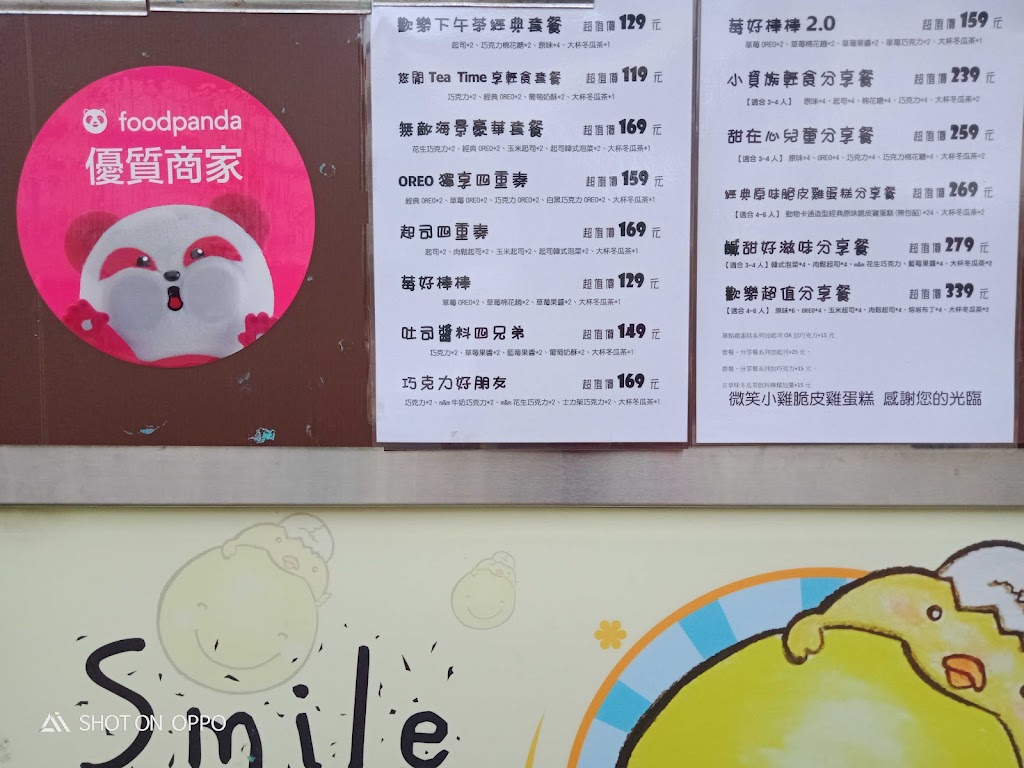 foodpanda
優質商家
歡樂下午茶經典套餐 超值價 129 元
起司*2、巧克力棉花糖*2、原味*4、大杯冬瓜茶*1
悠閒 Tea Time 享輕食套餐 超值價 119 元
巧克力*2、經典 OREO*2、葡萄奶酥*2、大杯冬瓜茶*1
無敵海景豪華套餐 超值價 169 元
花生巧克力*2、經典 OREO*2、玉米起司*2、起司韓式泡菜*2、大杯冬瓜茶*1
OREO 獨享四重奏 超值價 159 元
經典 OREO*2、草莓 OREO*2、巧克力 OREO*2、白黑巧克力 OREO*2、大杯冬瓜茶*1
起司四重奏 超值價 169 元
起司*2、肉鬆起司*2、玉米起司*2、起司韓式泡菜*2、大杯冬瓜茶*1
莓好棒棒 超值價 129 元
草莓 OREO*2、草莓棉花糖*2、草莓果醬*2、大杯冬瓜茶*1
吐司醬料四兄弟 超值價 149 元
巧克力*2、草莓果醬*2、藍莓果醬*2、葡萄奶酥*2、大杯冬瓜茶*1
巧克力好朋友 超值價 169 元
巧克力*2、m&m 牛奶巧克力*2、m&m 花生巧克力*2、士力架巧克力*2、大杯冬瓜茶*1
莓好棒棒 2.0 超值價 159 元
草莓 OREO*2、草莓棉花糖*2、草莓果醬*2、草莓巧克力*2、大杯冬瓜茶*1
小資族輕食分享餐 超值價 239 元
【適合 3~4 人】 原味*4、起司*4、棉花糖*4、巧克力*4、大杯冬瓜茶*2
甜在心兒童分享餐 超值價 259 元
【適合 3~4 人】 原味*4、OREO*4、巧克力*4、巧克力棉花糖*4、大杯冬瓜茶*2
經典原味脆皮雞蛋糕分享餐 超值價 269 元
【適合 4~6 人】 動物卡通造型經典原味脆皮雞蛋糕(無包餡)*24、大杯冬瓜茶*2
鹹甜好滋味分享餐 超值價 279 元
【適合 3~4 人】韓式泡菜*4、肉鬆起司*4、m&m 花生巧克力、藍莓果醬*4、大杯冬瓜茶*2
歡樂超值分享餐 超值價 339 元
【適合 4~6 人】 原味*6、OREO*4、玉米起司*4、肉鬆起司*4、熔岩布丁*4、大杯冬瓜茶*2
單點雞蛋糕系列加起司 OR 加巧克力+15 元
套餐、分享餐系列加起司+25 元
套餐、分享餐系列加巧克力+15 元
古早味冬瓜茶飲料檸檬加量+15 元
微笑小雞脆皮雞蛋糕 感謝您的光臨
Smile
SHOT ON OPPO